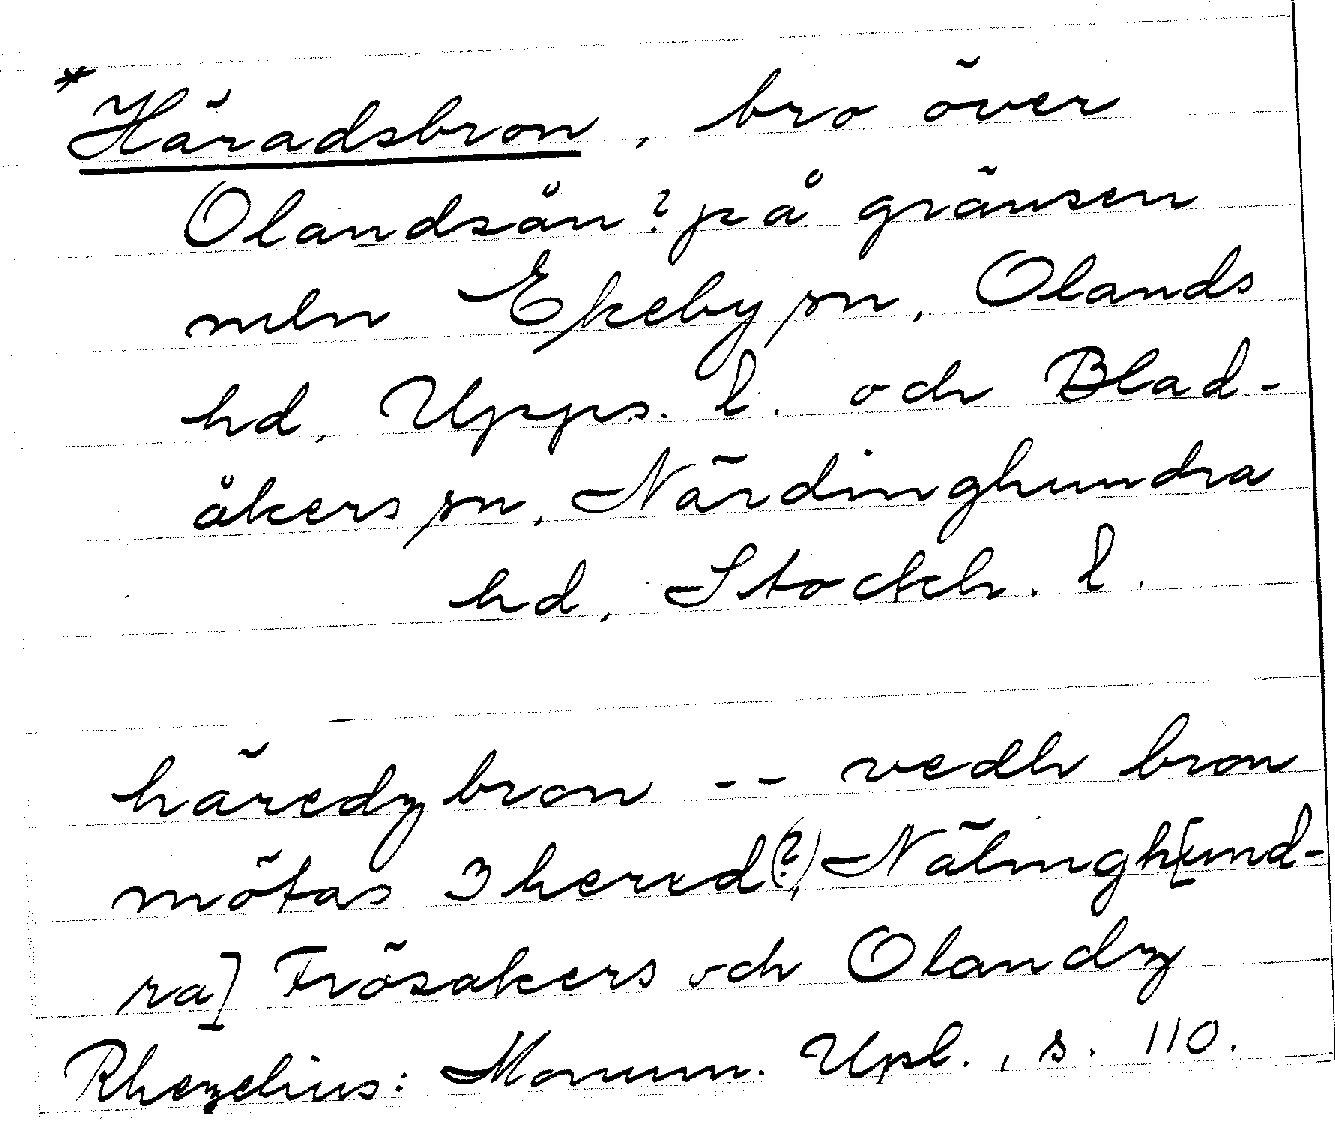 *Häradsbron, bro över
Olandsån? på gränsen
mln Ekeby sn, Olands
hd, Upps. l. och Blad-
åkers sn, Närdinghundra
hd, Stockh. l.
häredz bron -- vedh bron
mötas 3 hered(?), Nälingh[und-
ra] Frösakers och Olandz
Rhezelius: Monum. Upl., s. 110.